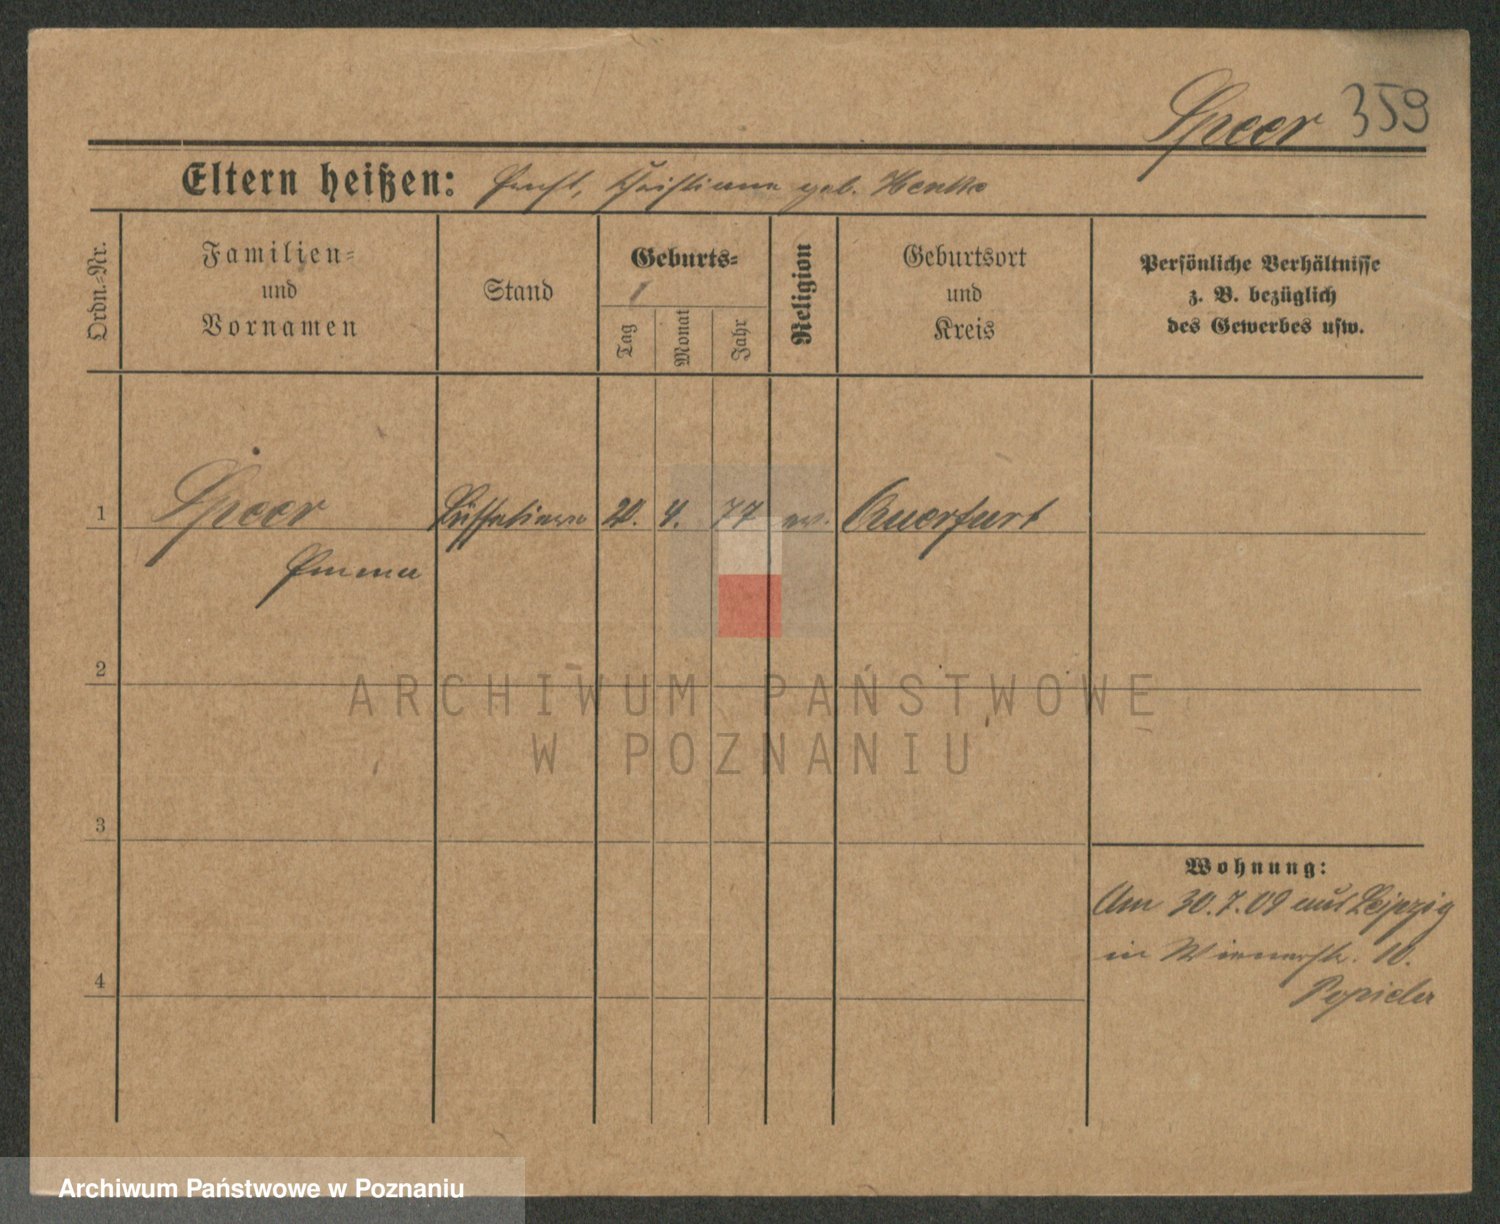 Speer 359
Eltern heißen: Ernst, Christiane geb. Henke
Ordn.-Nr.
Familien=
und
Vornamen
Stand
Geburts=
Tag
Monat
Jahr
Religion
Geburtsort
und
Kreis
Persönliche Verhältnisse
z. B. bezüglich
des Gewerbes usw.
1
Speer
Emma
20. 4. 77 ev. Querfurt
2
ARCHIWUM PAŃSTWOWE
W POZNANIU
3
Wohnung:
Am 30.7.09 aus Leipzig
in Wienerstr. 10.
4
Archiwum Państwowe w Poznaniu